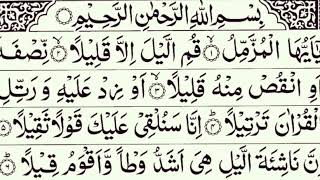 بِسْمِ اللهِ الرَّحْمٰنِ الرَّحِيْمِ
يٰۤاَيُّهَا الْمُزَّمِّلُ ۙ﴿۱﴾ قُمِ الَّيْلَ اِلَّا قَلِيْلًا ۙ﴿۲﴾ نِّصْفَهٗۤ
اَوِ انْقُصْ مِنْهُ قَلِيْلًا ۙ﴿۳﴾ اَوْ زِدْ عَلَيْهِ وَ رَتِّلِ
الْقُرْاٰنَ تَرْتِيْلًا ؕ﴿۴﴾ اِنَّا سَنُلْقِيْ عَلَيْكَ قَوْلًا ثَقِيْلًا ﴿۵﴾
نَّ نَاشِئَةَ الَّيْلِ هِيَ اَشَدُّ وَطْاً وَّ اَقْوَمُ قِيْلًا ؕ﴿۶﴾